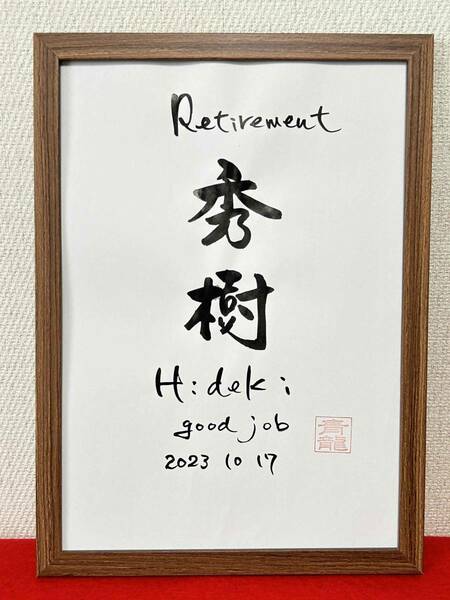 Retirement
秀
樹
Hideki
good job
2023 10 17
青
龍